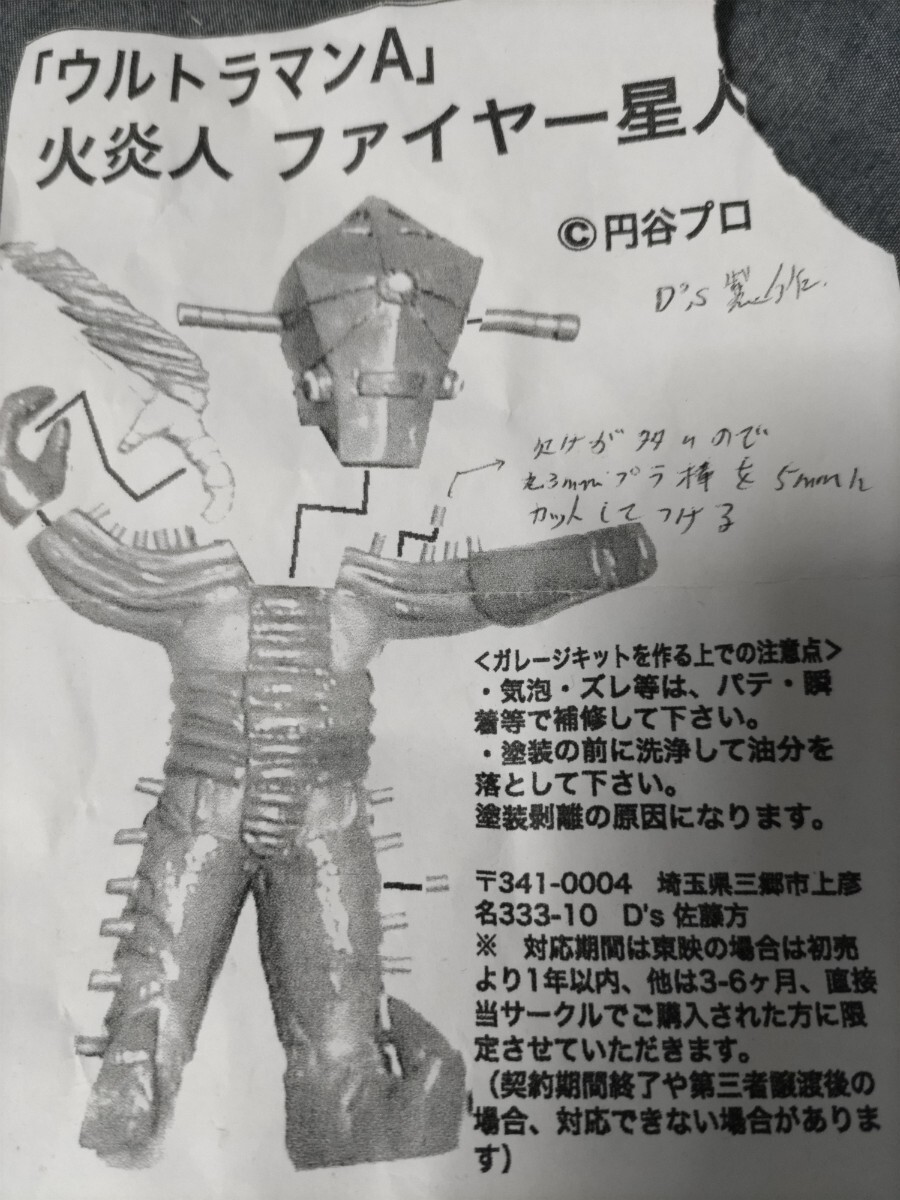 「ウルトラマンA」
火炎人 ファイヤー星人
©円谷プロ
D's 製作.
欠けが多いので
3mmプラ棒を5mmに
カットしてつける
<ガレージキットを作る上での注意点>
・気泡・ズレ等は、パテ・瞬
着等で補修して下さい。
・塗装の前に洗浄して油分を
落として下さい。
塗装剝離の原因になります。
〒341-0004　埼玉県三郷市上彦
名333-10　D's 佐藤方
※　対応期間は東映の場合は初売
より1年以内、他は3-6ヶ月、直接
当サークルでご購入された方に限
定させていただきます。
（契約期間終了や第三者譲渡後の
場合、対応できない場合がありま
す）